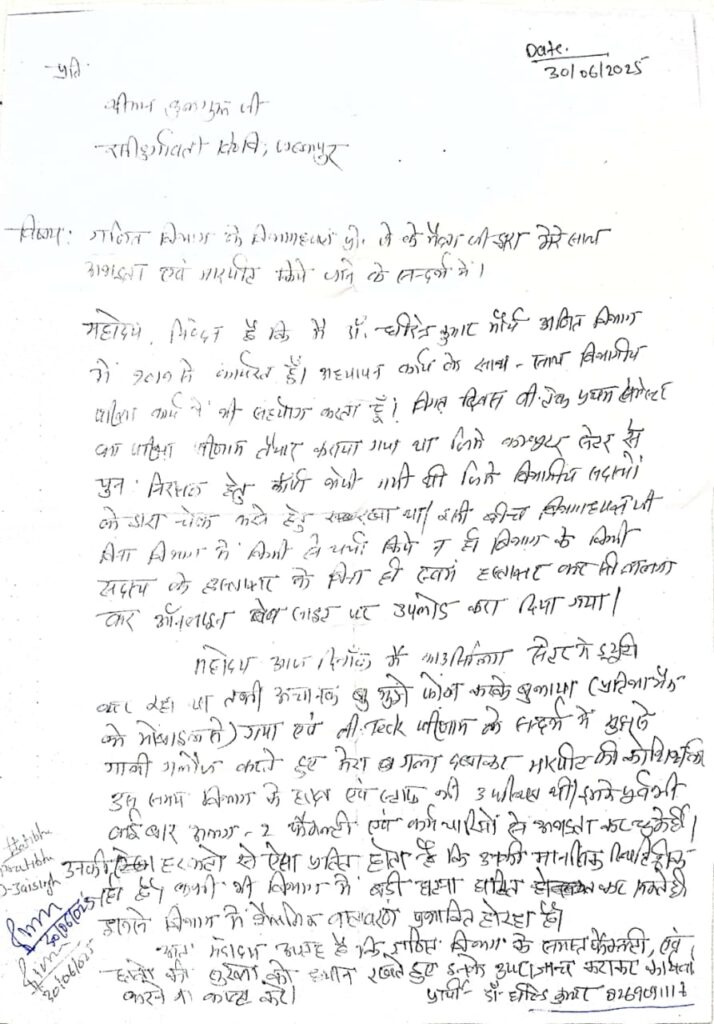 Date.
30/06/2025
प्रति
श्रीमान कुलगुरू जी
रानीदुर्गावती वि०वि०, जबलपुर
विषय: गणित विभाग के विभागाध्यक्ष प्रो. जे के मैत्रा जी द्वारा मेरे साथ
अभद्रता एवं मारपीट किये जाने के सन्दर्भ में।
महोदय, निवेदन है कि मैं डॉ. धीरेन्द्र कुमार मौर्य गणित विभाग
में २०१७ से कार्यरत हूँ। अध्यापन कार्य के साथ - साथ विभागीय
परीक्षा कार्य में भी सहयोग करता हूँ। विगत दिवस बी.टेक प्रथम सेमेस्टर
का परीक्षा परिणाम तैयार कराया गया था जिसे कम्प्यूटर सेंटर से
पुनः निरीक्षण हेतु कॉपी भेजी गयी थी जिसे विभागीय सदस्यों
के द्वारा चेक करने हेतु रखा था। इसी बीच विभागाध्यक्ष जी
बिना विभाग में किसी से चर्चा किये न ही विभाग के किसी
सदस्य के हस्ताक्षर के बिना ही स्वयं हस्ताक्षर कर
कर ऑनलाइन वेब साइट पर अपलोड करा दिया गया।
महोदय आज दिनाँक मैं काउंसिलिंग सेंटर में ड्यूटी
कर रहा था तभी अचानक मुझे फोन करके बुलाया
को मोबाइल से) गया एवं बी.Teck परिणाम के सन्दर्भ में मुझसे
गाली गलौज करते हुए मेरा गला दबाकर मारपीट की कोशिश की
उस समय विभाग के छात्र एवं स्टाफ भी उपस्थित थे। इसके पूर्व भी
कई बार अलग - २ फैकल्टी एवं कर्मचारियों से अभद्रता कर चुके हैं।
उनकी हरकतों से ऐसा प्रतीत होता है कि उनकी मानसिक स्थिति ठीक
नहीं है। कभी भी विभाग में बड़ी घटना घटित कर सकते हैं
इससे विभाग में शैक्षणिक वातावरण प्रभावित हो रहा है।
अतः महोदय आग्रह है कि गणित विभाग के समस्त फैकल्टी, एवं
छात्रों की सुरक्षा को ध्यान रखते हुए इनके ऊपर जाँच कराकर कार्यवाही
करने का कष्ट करें।
प्रार्थी- डॉ धीरेन्द्र कुमार 8269091117
Pratibha
D-Jaisingh
30/06/2025
30/06/2025